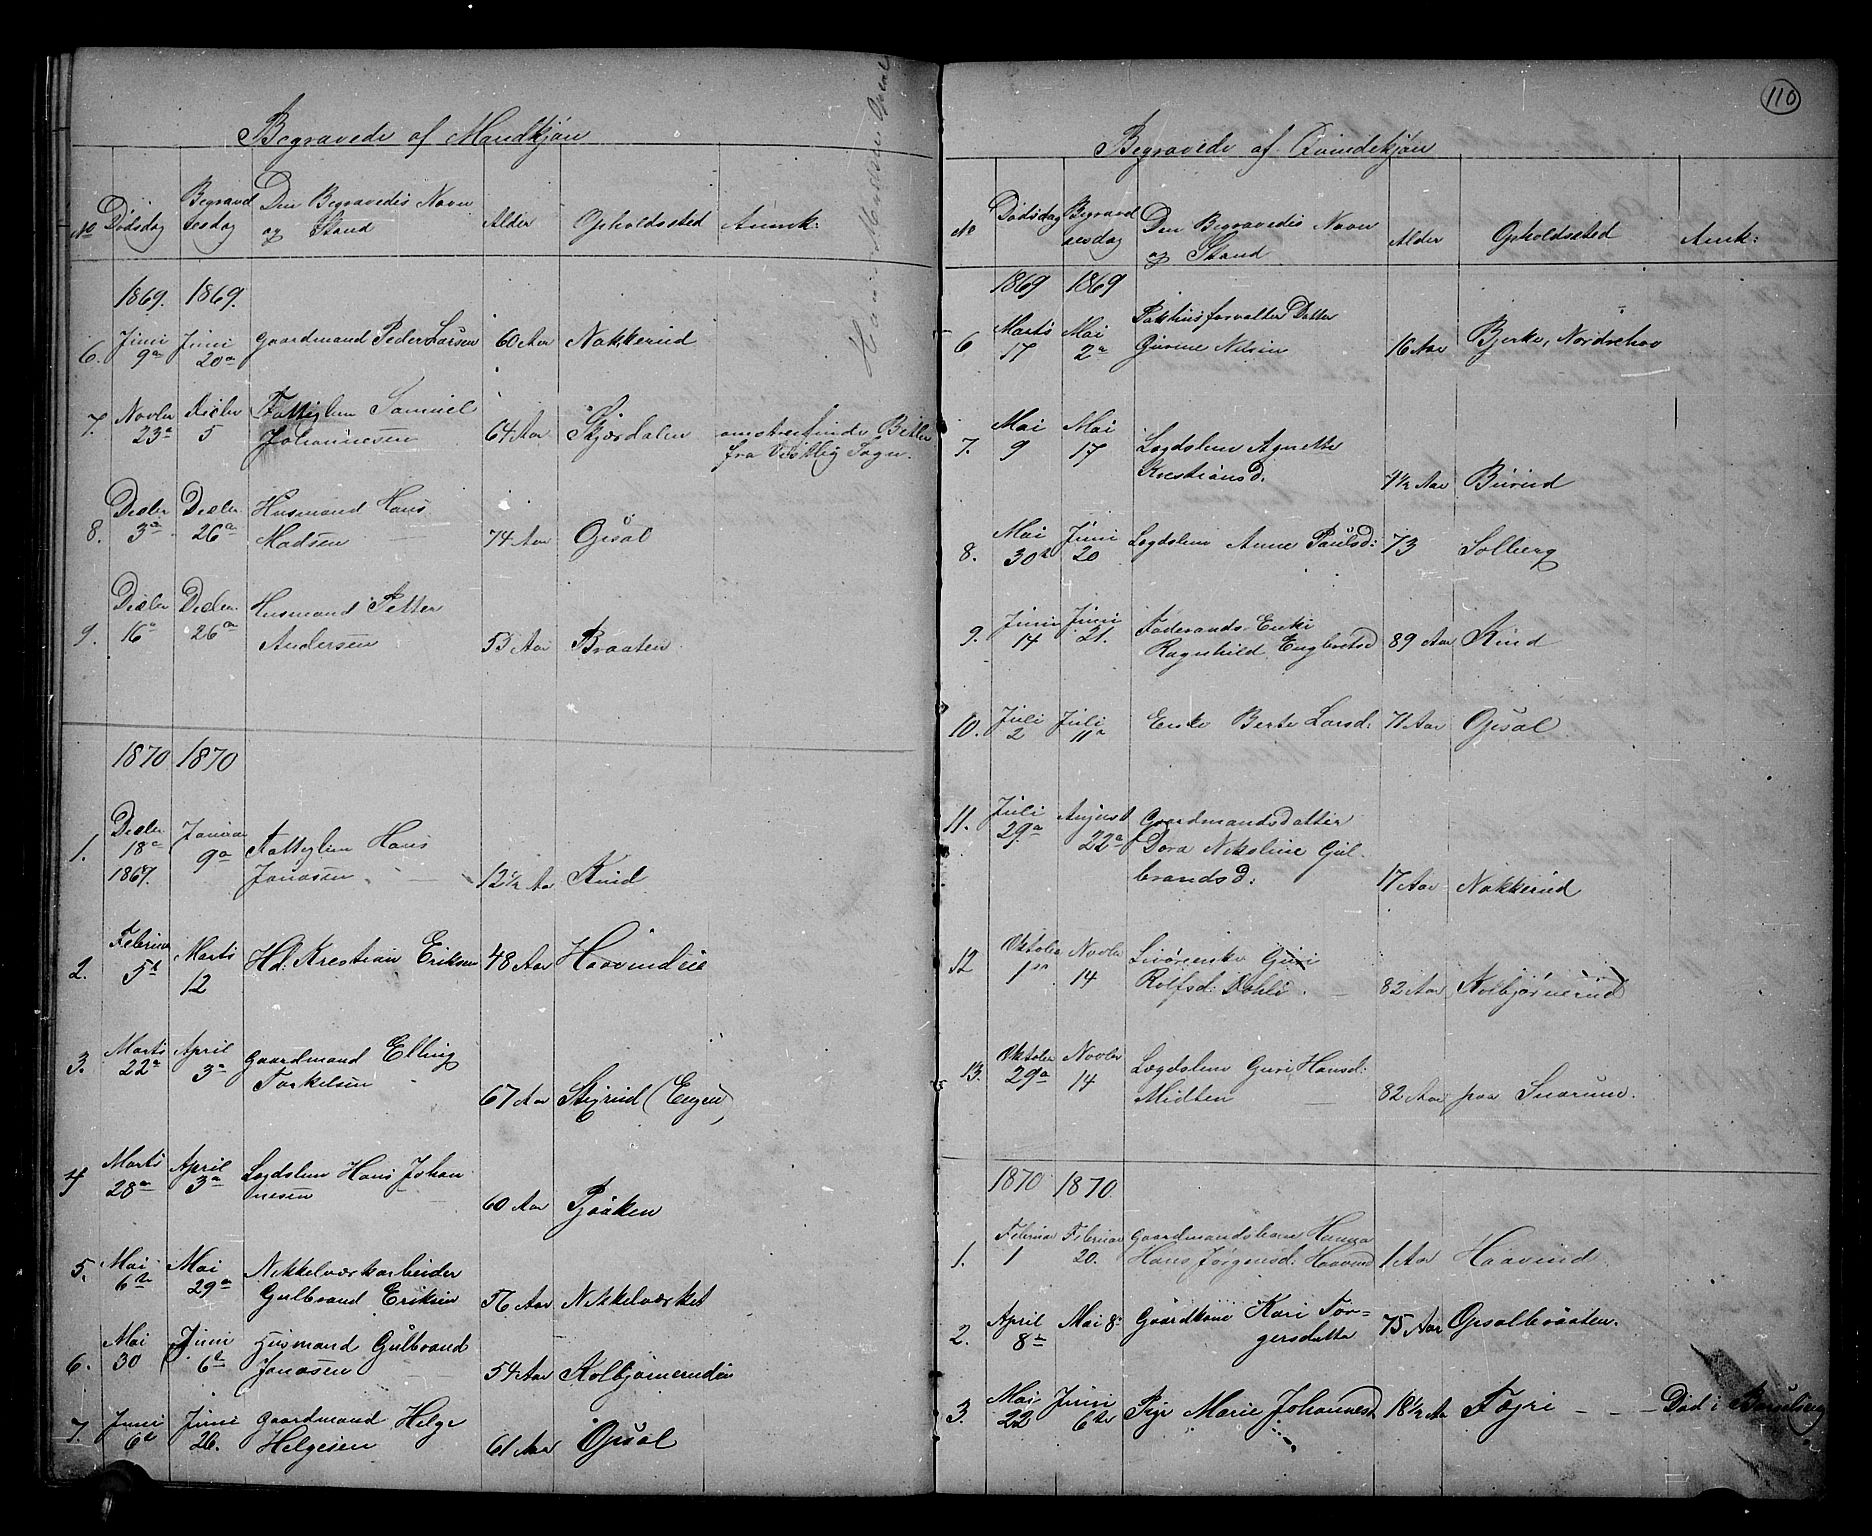 Begravede af Mandkjøn
No Dødsdag Begravelsesdag Den Begravedes Navn og Stand Alder Opholdssted Anmk:
1869. 1869.
6. Juni 9de Juni 20de Gaardmand Peder Larsen 60 Aar Nakkerud
7. Novbr 23de Decbr 5 Fattiglem Samuel
Johannesen 64 Aar Skjærdalen omstreifende Betler
fra Sogn.
8. Decbr 3de Decbr 26de Husmand Hans
Madsen 74 Aar Opsal
9. Decbr 16de Decbr 26de Husmand Petter
Andersen 53 Aar Braaten
1870 1870
1. Decbr 18de 1869. Januar 9de Fattiglem Hans
Jonasen 12 1/2 Aar Rud
2. Februar 5te Marts 12 Hd: Krestian Eriksen 48 Aar Haavindeie
3. Marts 22de April 3de Gaardmand Elling
Torkelsen 67 Aar Stigrud (Engen)
4 Marts 28de April 3de Lægdslem Hans Johan
nesen 60 Aar Pjaaken
5. Mai 6te Mai 29de Nikkelværkarbeider
Gulbrand Eriksen 56 Aar Nikkelværket
6. Mai 30 Juni 6te Husmand Gulbrand
Jonasen 54 Aar Kolbjørnrudeie
7. Juni 6te Juni 26. Gaardmand Helge
Helgesen 61 Aar Opsal
Hans Madsen Opsal
110
Begravede af Qvindekjøn
No Dødsdag Begravelsesdag Den Begravedes Navn og Stand Alder Opholdssted Amk:
1869 1869
6 Marts 17 Mai 2de Datter
Gurine Nilsen 16 Aar Bjerke, Norderhov
7. Mai 9 Mai 17 Lægdslem Agnette
Krestiansd. 4 1/2 Aar Burud
8. Mai 30te Juni 20 Lægdslem Anne Paulsd: 73 Solberg
9. Juni 14 Juni 21. Føderaads-Enke
Ragnhild Engbretsd 89 Aar Rud
10. Juli 2 Juli 11te Enke Berte Larsd: 71 Aar Opsal
11. Juli 29de August 22de Gaardmandsdatter
Dora Nikoline Gul-
brandsd: 17 Aar Nakkerud
12 Oktober 1ste Novbr 14 Livørenke Guri
Rolfsd: Dahli 82 Aar Kolbjørnerud
13. Oktober 29de Novbr 14 Lægdslem Guri Hansd:
Midten 82 Aar paa Snarum.
1870 1870
1. Februar 1 Februar 20. Gaardmandsbarn Hanna
Hans Jørgensd: Haavind 1 Aar Haavind.
2. April 8de Mai 8de Gaardkone Kari Tor-
gersdatter 75 Aar Opsalbraaten.
3. Mai 22 Juni 6te Pige Marie Johannesd 18 1/2 Aar Fægri - - - Død i